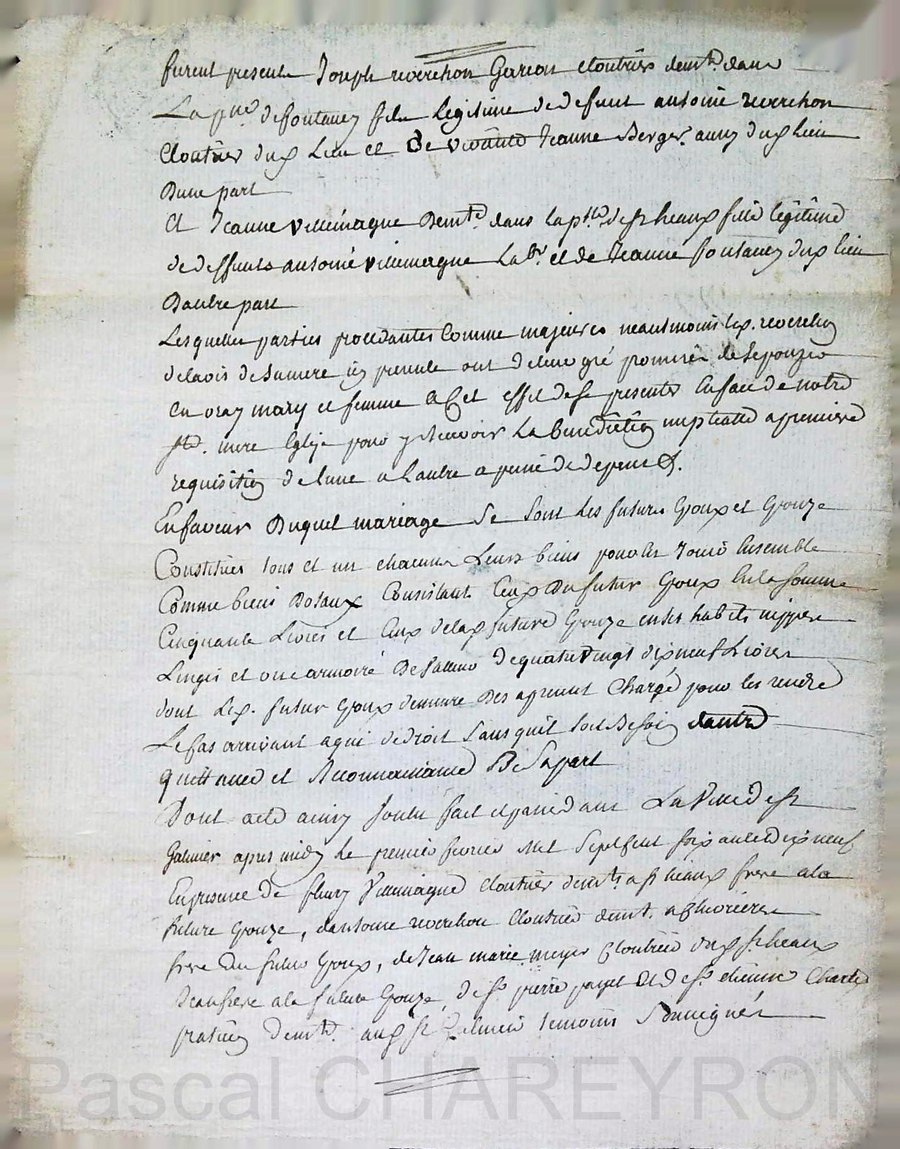 furent presents Joseph reverchon Garcon cloutier demt. dans
La psse de fontaney fils legitime de defunt antoine reverchon
cloutier dud Lieu et de vivante Jeanne Berger aussy dud lieu
Dune part
Et Jeanne villemagne Demte dans la psse de st heaux fille legitime
de deffunts antoine villemagne Labr. et de Jeanne fontaney dud lieu
Dautre part
Lesquelles parties procedantes Comme majeures neantmoins led. reverchon
de lavis de sa mere icy presente ont de leur gré promis de sepouzer
En vray mary et femme a Cet effet de se presenter En face de notre
ste. mere Eglize pour y Recevoir La Benediction nuptialle a premiere
requisition de lune a Lautre a peine de depens &.
En faveur Duquel mariage Se sont Les futurs Epoux et Epouze
Constitués tous et un chacuns Leurs biens pour les Jouir Ensemble
Comme biens Dotaux Consistant Ceux Du futur Epoux En la somme
Cinquante Livres et Ceux de lad future Epouze en ses habits nippes
Linges et une armoire De Sappin de quatre vingt dix neuf Livres
dont Led. futur Epoux demeure Des apresent Chargé pour les rendre
Le Cas arrivant a qui de Droit Sans quil soit Besoin dautre
quittance et Reconnaissance De Sa part
Dont acte ainsy voulu fait et passé dans La Ville de st
Galmier apres midy Le premier fevrier Mil Sept Cent soixante dix neuf
En presence De fleury Villemagne Cloutier demt. a st heaux frere a la
future Epouze, dantoine reverchon Cloutier demt. a
frere Du futur Epoux, de Jean marie meyer Cloutier dud st heaux
Beaufrere a la future Epouze, de Sr. pierre payet Et de Sr. etienne Charles
praticien Demt. aud st Galmier temoins Soussignés
Pascal CHAREYRON